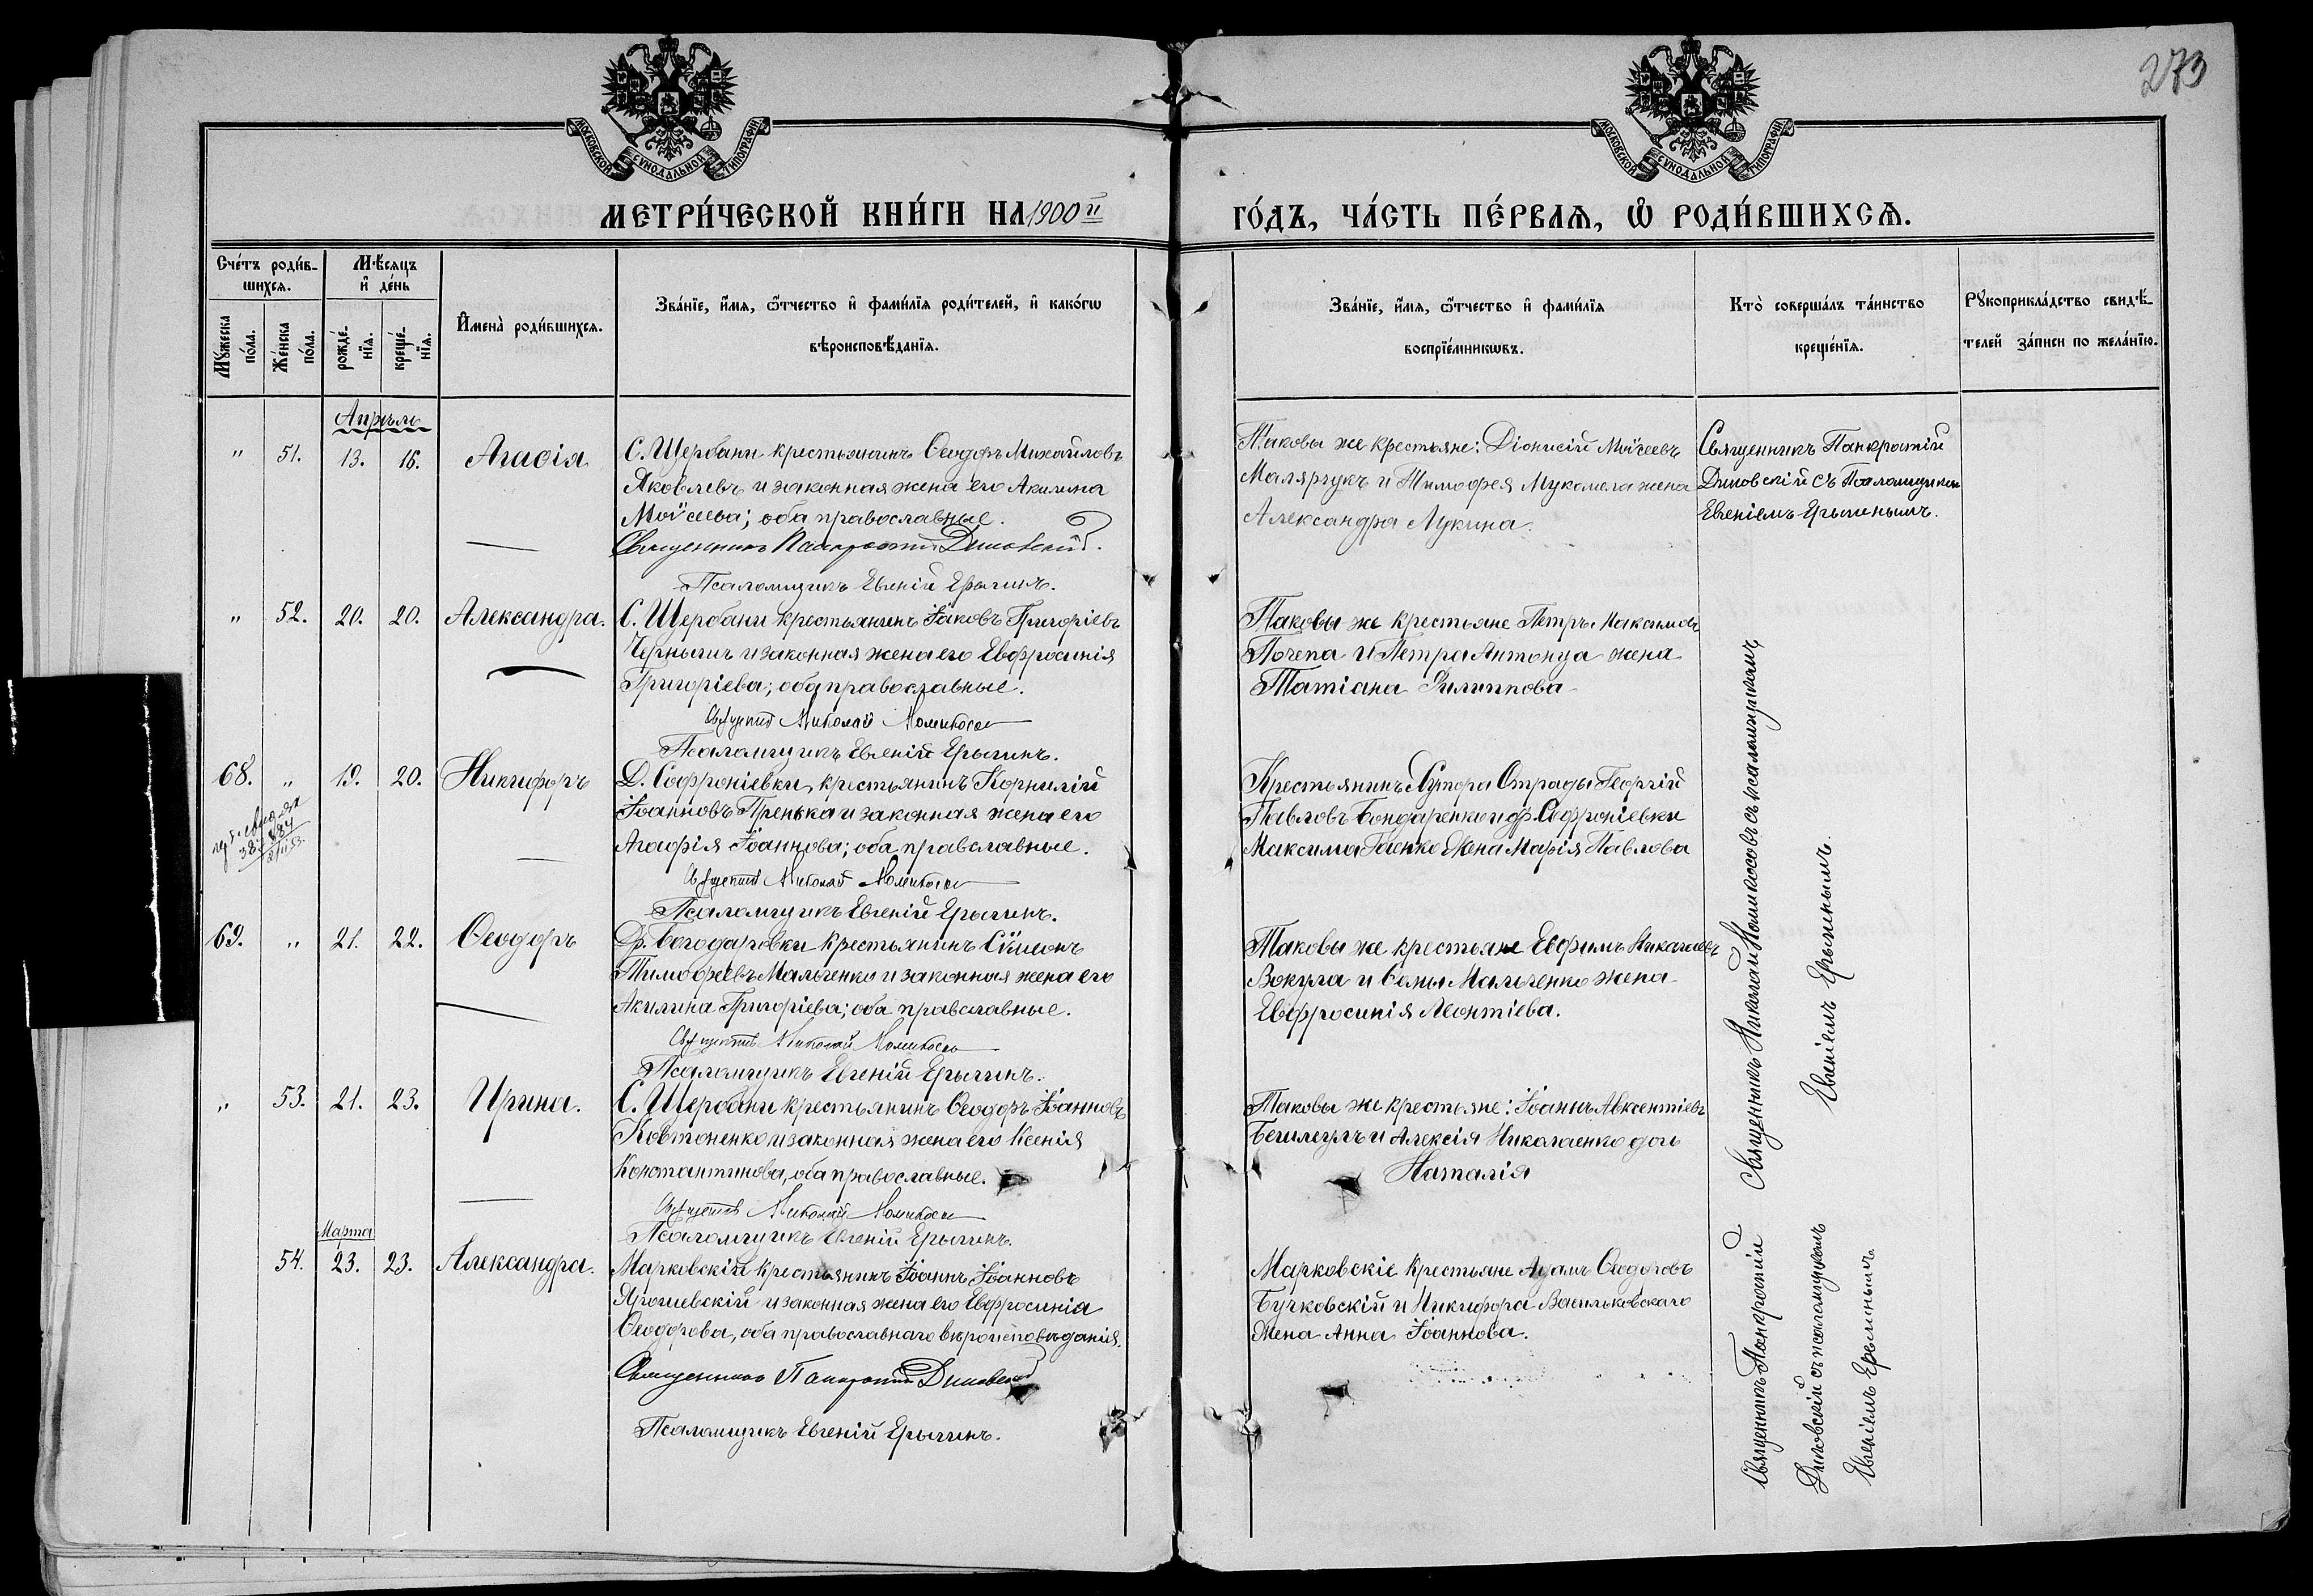 273
МОСКОВСКОЙ СѴНОДАЛЬНОЙ ТИПОГРАФІИ
МОСКОВСКОЙ СѴНОДАЛЬНОЙ ТИПОГРАФІИ
МЕТРИ́ЧЕСКОЙ КНИ́ГИ НА 1900й ГО́ДЪ, ЧА́СТЬ ПЕ́РВАѦ, Ѽ РОДИ́ВШИХСѦ.
Сче́тъ роди́в-
шихсѧ.
Мꙋ́жеска по́ла.
Же́нска по́ла.
Мѣ́сѧцъ и҆ де́нь
рожде́-нїѧ.
креще́-нїѧ.
И҆мена̀ роди́вшихсѧ.
Зва́нїе, и҆́мѧ, ѻ҆́тчество и҆ фами́лїѧ роди́телей, и҆ како́гѡ
вѣроисповѣ́данїѧ.
Зва́нїе, и҆́мѧ, ѻ҆́тчество и҆ фами́лїѧ
воспрїе́мникѡвъ.
Кто̀ соверша́лъ та́инство
креще́нїѧ.
Рꙋкоприкла́дство свидѣ́-
телей за́писи по жела́нїю.
Апрѣль
" 51. 13. 16. Агаѳія
С. Щербани крестьянинъ Ѳеодоръ Михайловъ
Яковлевъ и законная жена его Акилина
Моѵсеева; оба православные.
Священникъ Панкратій Диковскій.
Псаломщикъ Евгеній Ерыгинъ.
Таковы же крестьяне: Діонисій Моѵсеевъ
Малярчукъ и Тимоѳея Мукомела жена
Александра Лукина.
Священникъ Панкратій
Диковскій съ Псаломщикомъ
Евгеніемъ Ерыгинымъ.
" 52. 20. 20. Александра.
С. Щербани крестьянинъ Іаковъ Григоріевъ
и законная жена его Евфросинія
Григоріева; оба православные.
Священникъ Николай
Псаломщикъ Евгеній Ерыгинъ.
Таковы же крестьяне Петръ Максимовъ
Почепа и Петра Антонца жена
Татіана Филиппова
68. " 19. 20. Никифоръ
Д. Софроніевки, крестьянинъ Корнилій
Іоанновъ Пренька и законная жена его
Агафія Іоаннова; оба православные.
Священникъ Николай
Псаломщикъ Евгеній Ерыгинъ.
Крестьянинъ Хутора Отрады Георгій
Павловъ Бондаренко и др. Софроніевки
Максима Гаенко жена Марія Павлова
69. " 21. 22. Ѳеодоръ
Др. Богодаровки крестьянинъ Сѵмеонъ
Тимоѳеевъ Мальченко и законная жена его
Акилина Григоріева; оба православные.
Священникъ Николай
Псаломщикъ Евгеній Ерыгинъ.
Таковы же крестьяне Евфимъ Николаевъ
Вокула и Мальченко жена
Евфросинія Леонтіева.
" 53. 21. 23. Ирина.
С. Щербани крестьянинъ Ѳеодоръ Іоанновъ
Ковтоненко и законная жена его Ксенія
Константинова, оба православные.
Священникъ Николай
Псаломщикъ Евгеній Ерыгинъ.
Таковы же крестьяне: Іоаннъ Авксентіевъ
и Алексія Николаенко дочь
Наталія
Священникъ Николай съ псаломщикомъ
Евгеніемъ Ерыгинымъ.
Марта
54. 23. 23. Александра.
Марковскій крестьянинъ Іоаннъ Іоанновъ
Ярошевскій и законная жена его Евфросинія
Ѳеодорова, оба православнаго вѣроисповѣданія.
Священникъ Панкратій Диковскій
Псаломщикъ Евгеній Ерыгинъ.
Марковскіе крестьяне Адамъ Ѳеодоровъ
Бучковскій и Никифора Васильковскаго
жена Анна Іоаннова.
Священникъ Панкратій
Диковскій съ псаломщикомъ
Евгеніемъ Ерыгинымъ.